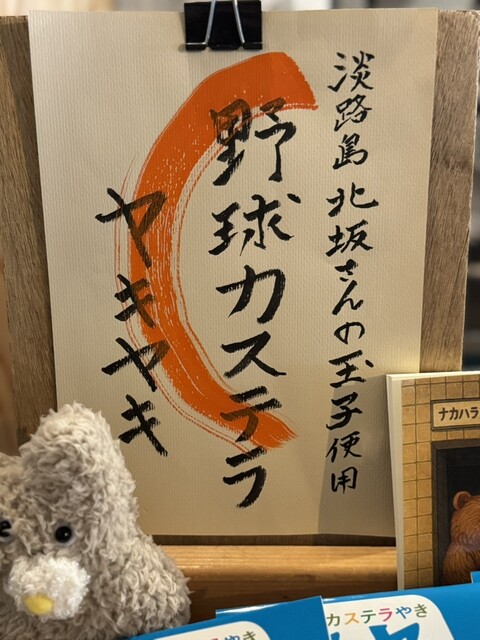 淡路島 北坂さんの玉子使用
野球カステラ
ヤキヤキ
ナカハラ
カステラやき